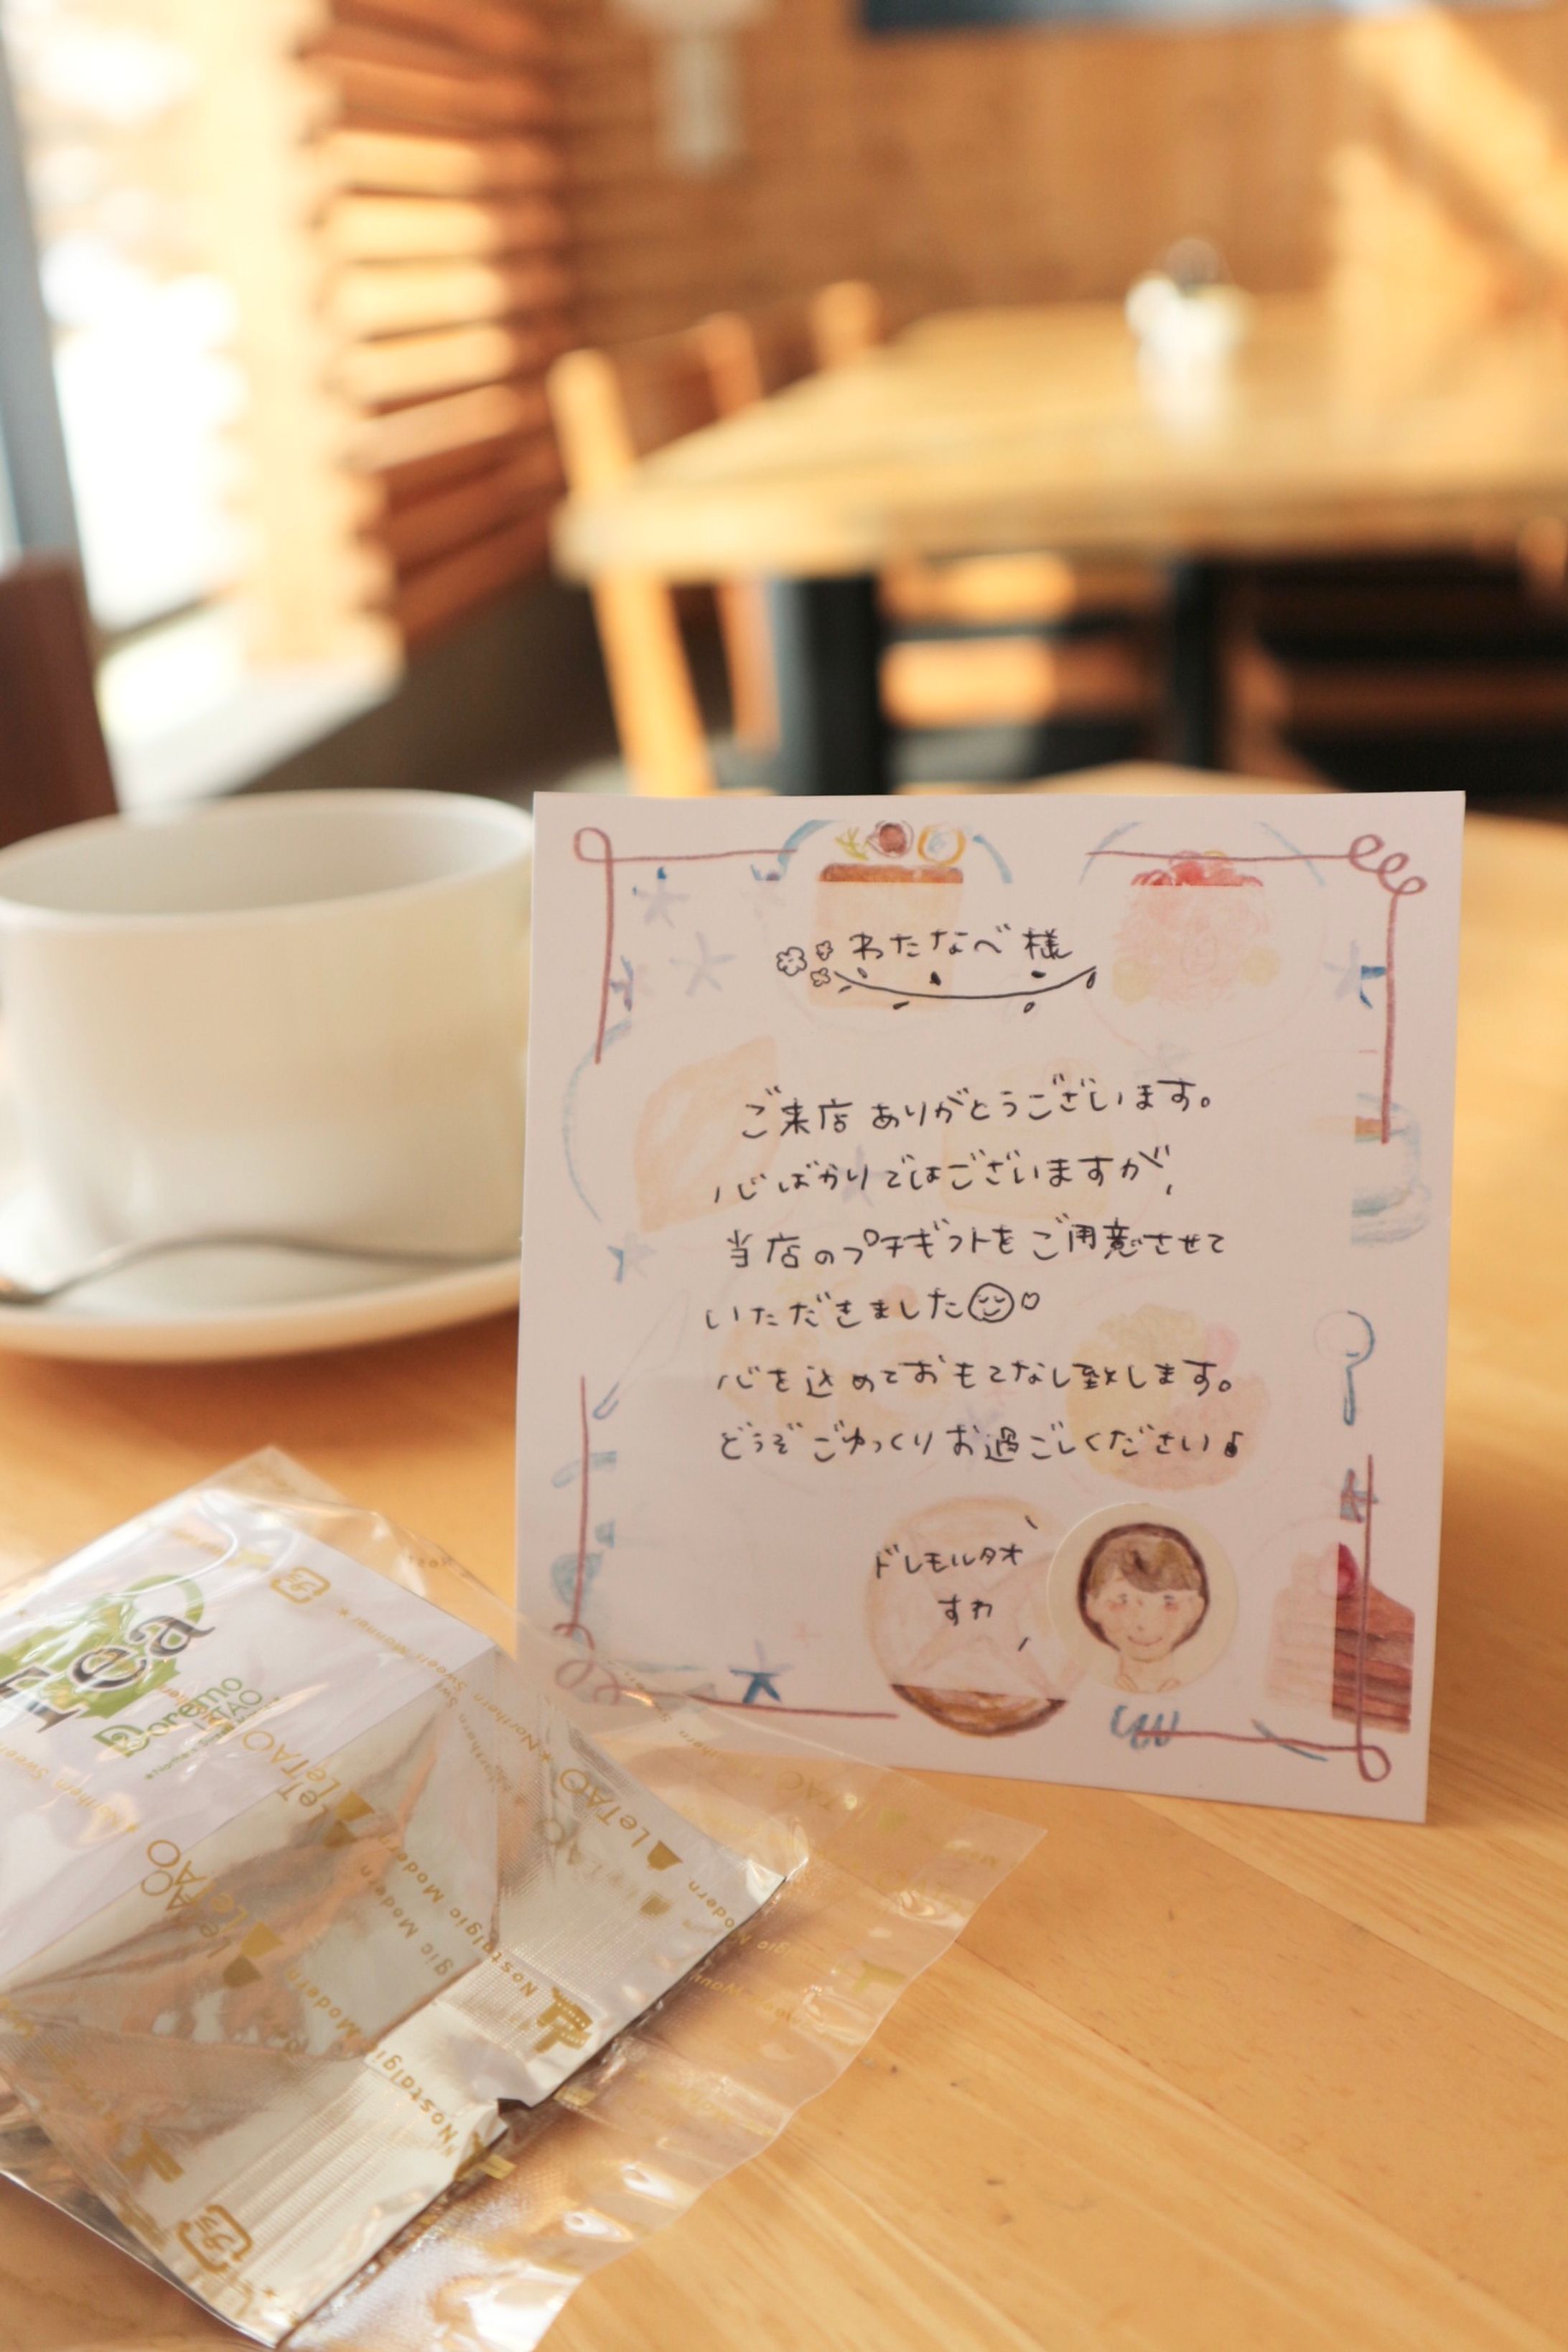 わたなべ様
ご来店ありがとうございます。
心ばかりではございますが、
当店のプチギフトをご用意させて
いただきました
心を込めておもてなし致します。
どうぞごゆっくりお過ごしください♪
ドレモルタオ
すわ
Tea
Doremo
LeTAO
LeTAO
LeTAO
LeTAO
LeTAO
LeTAO
Nostalgic Modern
Nostalgic Modern
プラ
プラ